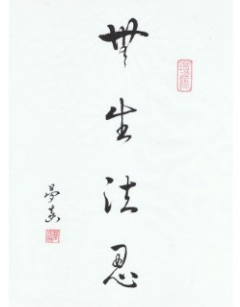 無生法忍
夢春